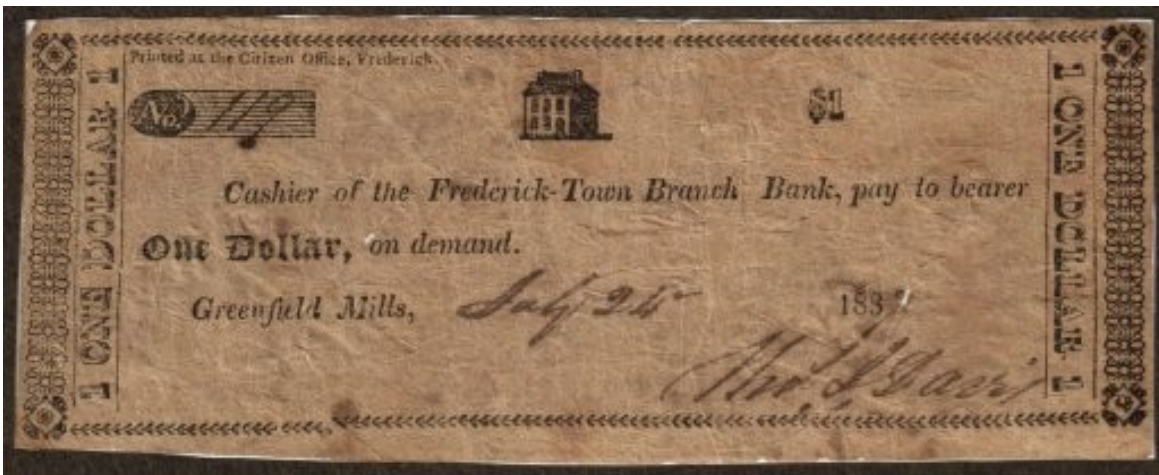 Printed at the Citizen Office, Frederick.
No. 119
$1
Cashier of the Frederick-Town Branch Bank, pay to bearer
One Dollar, on demand.
Greenfield Mills, July 25 1837
Tho. J. Davis
1 ONE DOLLAR 1
1 ONE DOLLAR 1